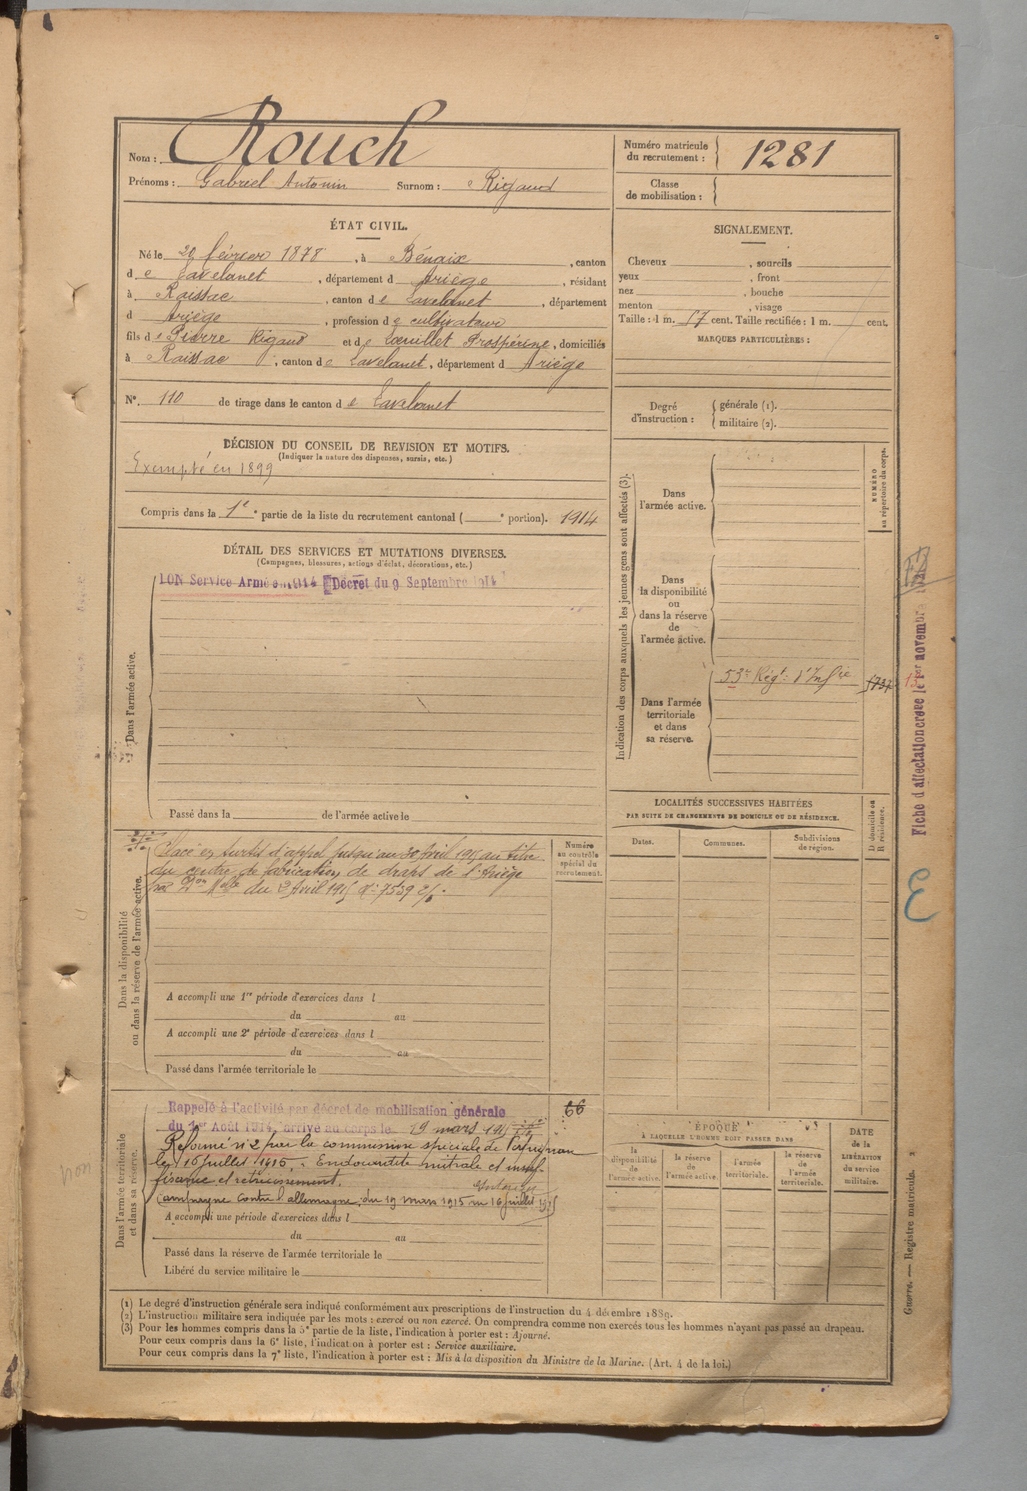 Nom : Rouch
Prénoms : Gabriel Antonin Surnom : Rigaud
Numéro matricule du recrutement : 1281
Classe de mobilisation :
ÉTAT CIVIL.
Né le 20 février 1878, à Bénaix, canton
de Lavelanet, département d Ariège, résidant
à Raissac, canton de Lavelanet, département
d Ariège, profession de cultivateur
fils de Pierre Rigaud et de Prospérine, domiciliés
à Raissac, canton de Lavelanet, département d Ariège
N° 110 de tirage dans le canton de Lavelanet
SIGNALEMENT.
Cheveux , sourcils
yeux , front
nez , bouche
menton , visage
Taille : 1 m. 57 cent. Taille rectifiée : 1 m. cent.
MARQUES PARTICULIÈRES :
Degré d'instruction : générale (1).
militaire (2).
DÉCISION DU CONSEIL DE REVISION ET MOTIFS.
(Indiquer la nature des dispenses, sursis, etc.)
Exempté en 1899
Compris dans la 1e partie de la liste du recrutement cantonal ( e portion). 1914
DÉTAIL DES SERVICES ET MUTATIONS DIVERSES.
(Campagnes, blessures, actions d'éclat, décorations, etc.)
Service Armé 1914 Décret du 9 Septembre 1914
Dans l'armée active.
Passé dans la de l'armée active le
Dans la disponibilité ou dans la réserve de l'armée active.
Placé en sursis d'appel jusqu'au 30 Avril 1915 au titre
du de fabrication de draps de l'Ariège
Don Melle du 3 Avril 1915 N° 7539
A accompli une 1re période d'exercices dans l
du au
A accompli une 2e période d'exercices dans l
du au
Passé dans l'armée territoriale le
Numéro au contrôle spécial du recrutement.
Dans l'armée territoriale et dans sa réserve.
Rappelé à l'activité par décret de mobilisation générale
du 1er Août 1914, arrivé au corps le 19 mars 1915
Réformé n° 2 par la commission spéciale de Perpignan
le 16 juillet 1915. Endocardite mitrale et insuf-
fisance et rétrécissement.
Campagne contre l'allemagne : du 19 mars 1915 au 16 juillet 1915
A accompli une période d'exercices dans l
du au
Passé dans la réserve de l'armée territoriale le
Libéré du service militaire le
66
Indication des corps auxquels les jeunes gens sont affectés (3).
Dans l'armée active.
Dans la disponibilité ou dans la réserve de l'armée active.
Dans l'armée territoriale et dans sa réserve.
53e Régt d'Infie
NUMÉRO au répertoire du corps.
LOCALITÉS SUCCESSIVES HABITÉES
PAR SUITE DE CHANGEMENTS DE DOMICILE OU DE RÉSIDENCE.
Dates. Communes. Subdivisions de région. D domicile ou R résidence.
ÉPOQUE
À LAQUELLE L'HOMME DOIT PASSER DANS
la disponibilité de l'armée active.
la réserve de l'armée active.
l'armée territoriale.
la réserve de l'armée territoriale.
DATE de la LIBÉRATION du service militaire.
Fiche d'affectation créée le 1er novembre
E
non
Guerre. — Registre matricule. 2
(1) Le degré d'instruction générale sera indiqué conformément aux prescriptions de l'instruction du 4 décembre 1889.
(2) L'instruction militaire sera indiquée par les mots : exercé ou non exercé. On comprendra comme non exercés tous les hommes n'ayant pas passé au drapeau.
(3) Pour les hommes compris dans la 5e partie de la liste, l'indication à porter est : Ajourné.
Pour ceux compris dans la 6e liste, l'indication à porter est : Service auxiliaire.
Pour ceux compris dans la 7e liste, l'indication à porter est : Mis à la disposition du Ministre de la Marine. (Art. 4 de la loi.)